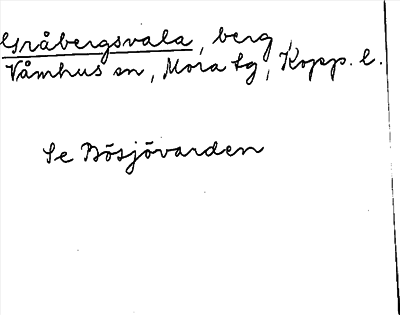 Gråbergsvala, berg,
Våmhus sn, Mora tg, Kopp. l.
Se Bösjövarden